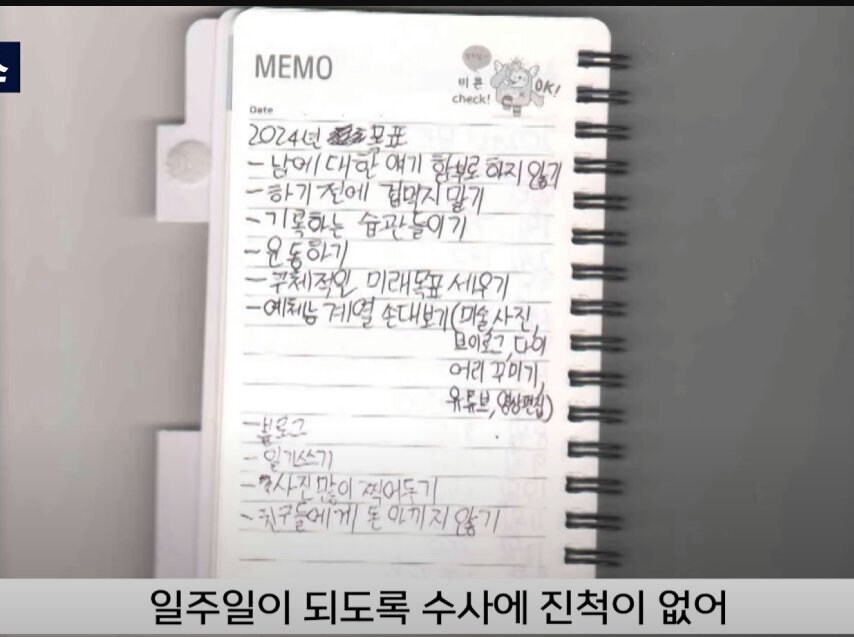 스
MEMO
비 콘
check!
OK!
Date
2024년 목표
- 남에 대한 얘기 함부로 하지 않기
- 하기 전에 겁먹지 말기
- 기록하는 습관들이기
- 운동하기
- 구체적인 미래목표 세우기
- 예체능 계열 손대보기(미술,사진,
브이로그,다이
어리 꾸미기,
유튜브,영상편집)
- 블로그
- 일기쓰기
- 사진많이 찍어두기
- 친구들에게 돈 아끼지 않기
일주일이 되도록 수사에 진척이 없어